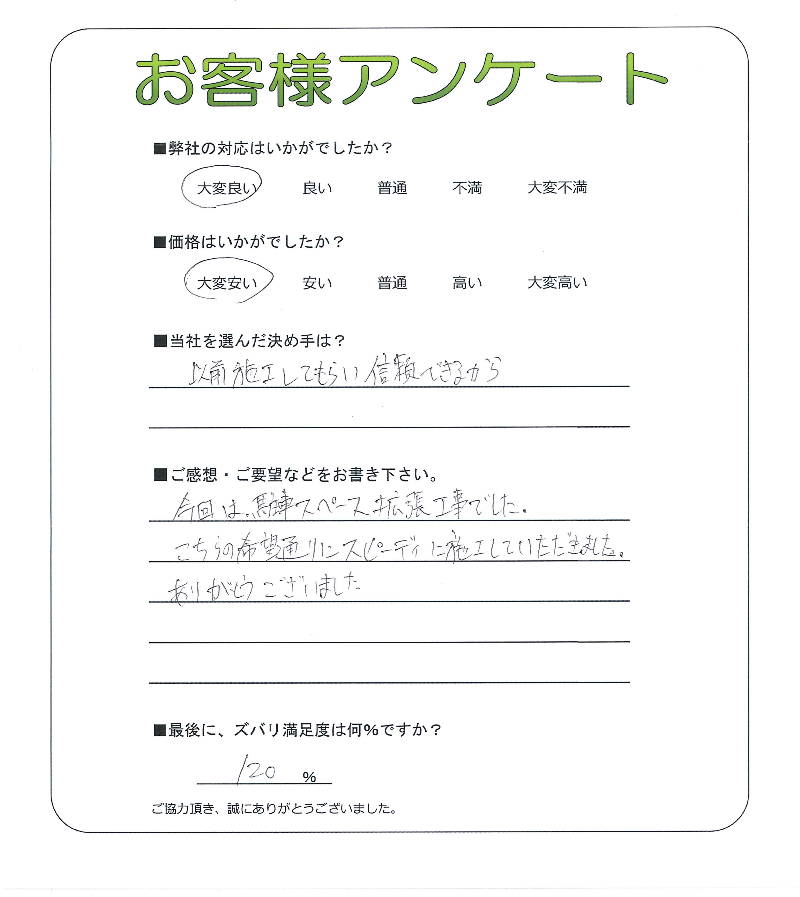 お客様アンケート
■弊社の対応はいかがでしたか？
大変良い 良い 普通 不満 大変不満
■価格はいかがでしたか？
大変安い 安い 普通 高い 大変高い
■当社を選んだ決め手は？
以前施工してもらい信頼できるから
■ご感想・ご要望などをお書き下さい。
今回は、駐車スペース拡張工事でした。
こちらの希望通りにスピーディに施工していただきました。
ありがとうございました
■最後に、ズバリ満足度は何%ですか？
120 %
ご協力頂き、誠にありがとうございました。